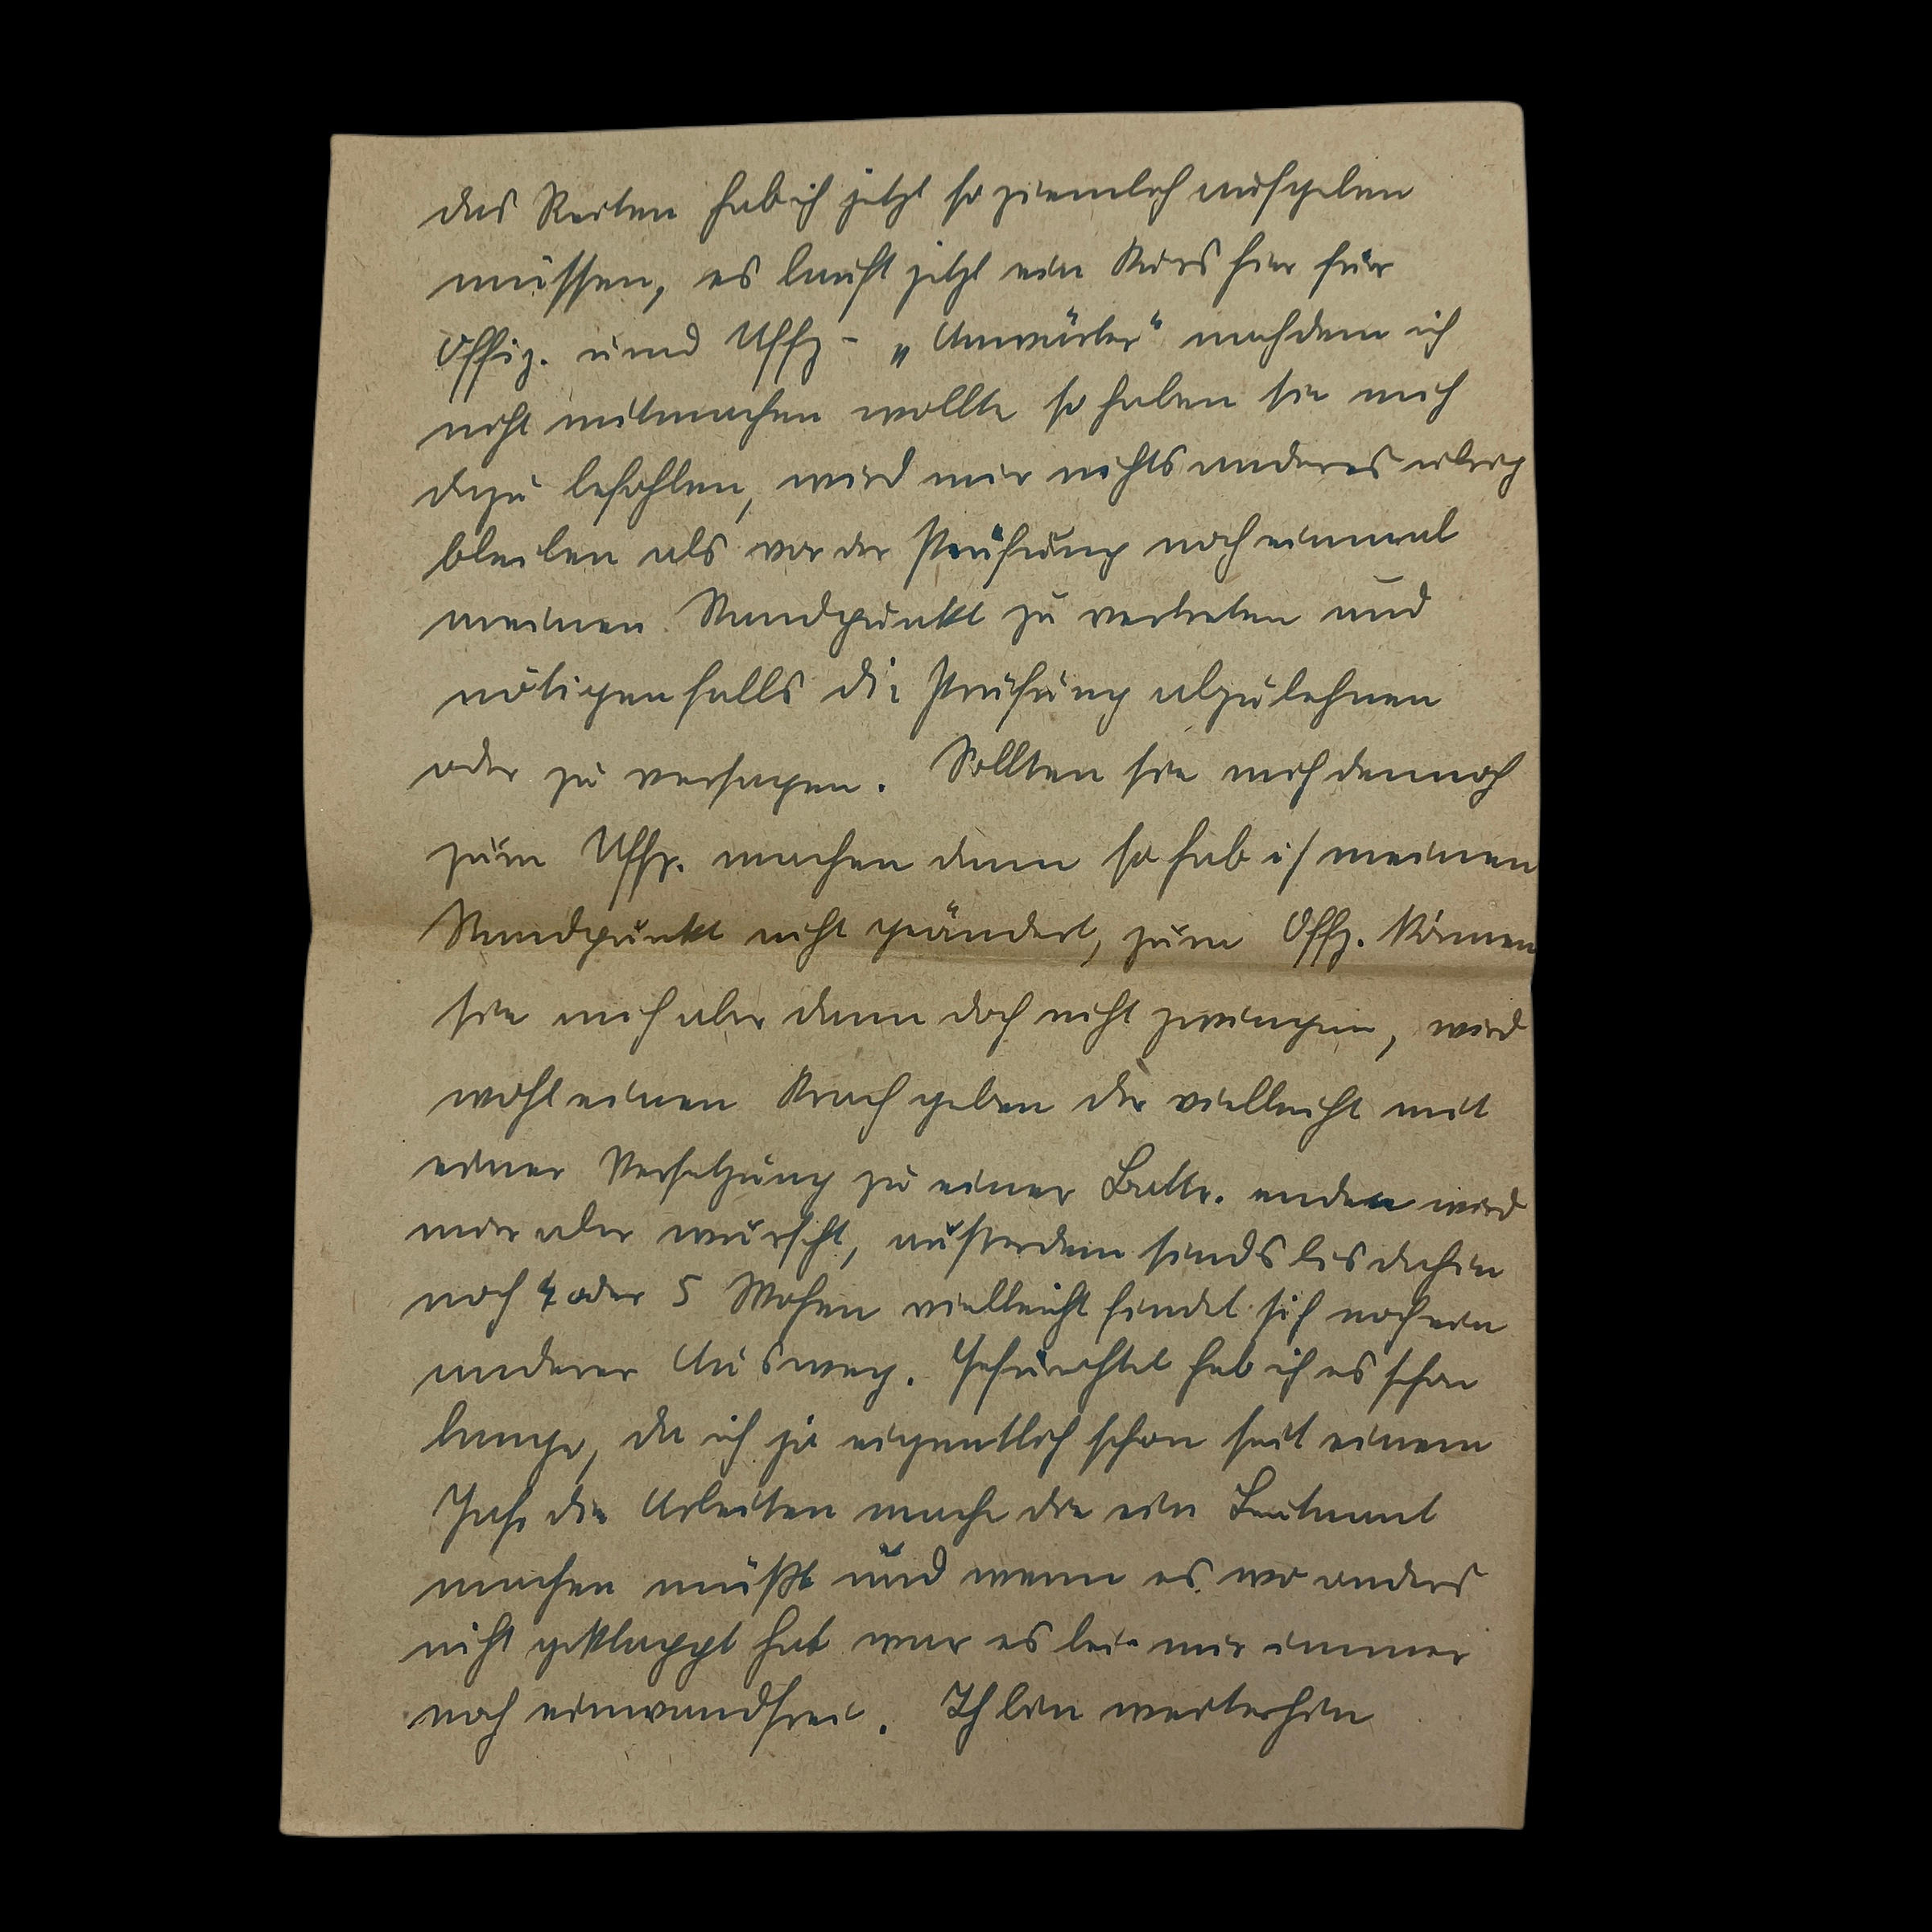 das Reiten hab ich jetzt so ziemlich aufgeben
müssen, es lauft jetzt ein Kurs hier für
Offiz. und Uffz - „Anwärter" nachdem ich
nicht mitmachen wollte so haben sie mich
dazu befohlen, wird mir nichts anderes übrig
bleiben als vor der Prüfung noch einmal
meinen Standpunkt zu vertreten und
nötigenfalls die Prüfung abzulehnen
oder zu versagen. Sollten sie mich dennoch
zum Uffz. machen dann so hab ich meinen
Standpunkt nicht geändert, zum Offz. können
sie mich aber dann doch nicht zwingen, wird
wohl einen Krach geben der vielleicht mit
einer Versetzung zu einer Battr. enden wird
mir aber wurscht, außerdem sinds bis dahin
noch 4 oder 5 Wochen vielleicht findet sich noch ein
anderer Ausweg. Gefürchtet hab ich es schon
lange, da ich ja eigentlich schon seit einem
Jahr die Arbeiten mache die ein Leutnant
machen müßt und wenn es wo anders
nicht geklappt hat war es bei mir immer
noch einwandfrei. Ich bin weiterhin